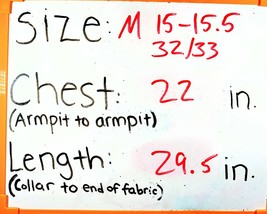 Size: M 15-15.5
32/33
Chest: 22 in.
(Armpit to armpit)
Length: 29.5 in.
(Collar to end of fabric)